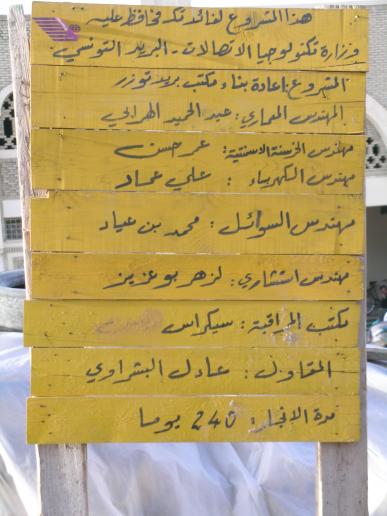 هذا المشروع لفائدتكم فحافظ عليه
وزارة تكنولوجيا الاتصالات - البريد التونسي
المشروع: إعادة بناء مكتب بريد توزر
المهندس المعماري: عبد الحميد الهرابي
مهندس الخرسنة الاسمنتية: عمر حسن
مهندس الكهرباء: علي عماد
مهندس السوائل: محمد بن عياد
مهندس استشاري: لزهر بوعزيز
مكتب المراقبة: سيكراس
المقاول: عادل البشراوي
مدة الإنجاز: 240 يوما